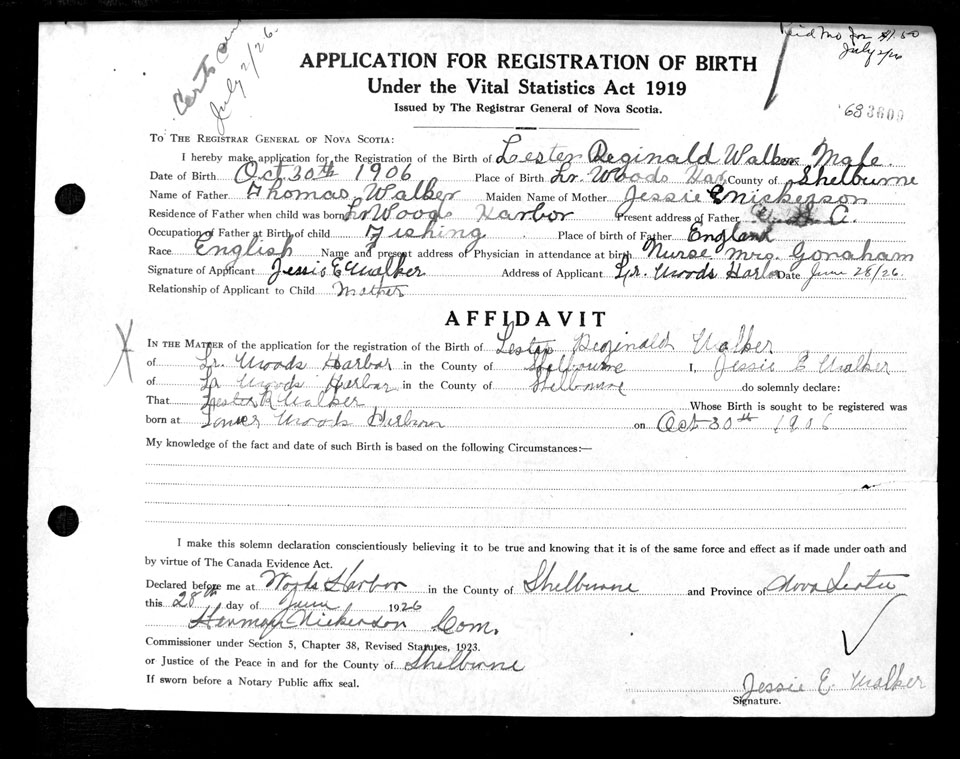 Certs
July 2/26.
Paid Mo for $1.50
July 2/26
APPLICATION FOR REGISTRATION OF BIRTH
Under the Vital Statistics Act 1919
Issued by The Registrar General of Nova Scotia.
To The Registrar General of Nova Scotia:
I hereby make application for the Registration of the Birth of Lester Reginald Walker Male
Date of Birth Oct. 30th 1906 Place of Birth Lr. Woods Har County of Shelburne
Name of Father Thomas Walker Maiden Name of Mother Jessie E Nickerson
Residence of Father when child was born Lr Woods Harbor Present address of Father
Occupation of Father at Birth of child Fishing Place of birth of Father England
Race English Name and present address of Physician in attendance at birth Nurse Mrs.
Signature of Applicant Jessie E Walker Address of Applicant Lr. Woods Harbor Date June 28/26.
Relationship of Applicant to Child Mother
AFFIDAVIT
In the Matter of the application for the registration of the Birth of Lester Reginald Walker
of Lr. Woods Harbor in the County of Shelburne I, Jessie E Walker
of Lr Woods Harbor in the County of Shelbourne do solemnly declare:
That Lester R Walker Whose Birth is sought to be registered was
born at Lower Woods Harbor on Oct 30th 1906
My knowledge of the fact and date of such Birth is based on the following Circumstances:—
I make this solemn declaration conscientiously believing it to be true and knowing that it is of the same force and effect as if made under oath and
by virtue of The Canada Evidence Act.
Declared before me at Woods Harbor in the County of Shelburne and Province of Nova Scotia
this 28th day of June 1926
Herman Nickerson Com.
Commissioner under Section 5, Chapter 38, Revised Statutes, 1923.
or Justice of the Peace in and for the County of Shelburne
If sworn before a Notary Public affix seal.
Jessie E. Walker
Signature.